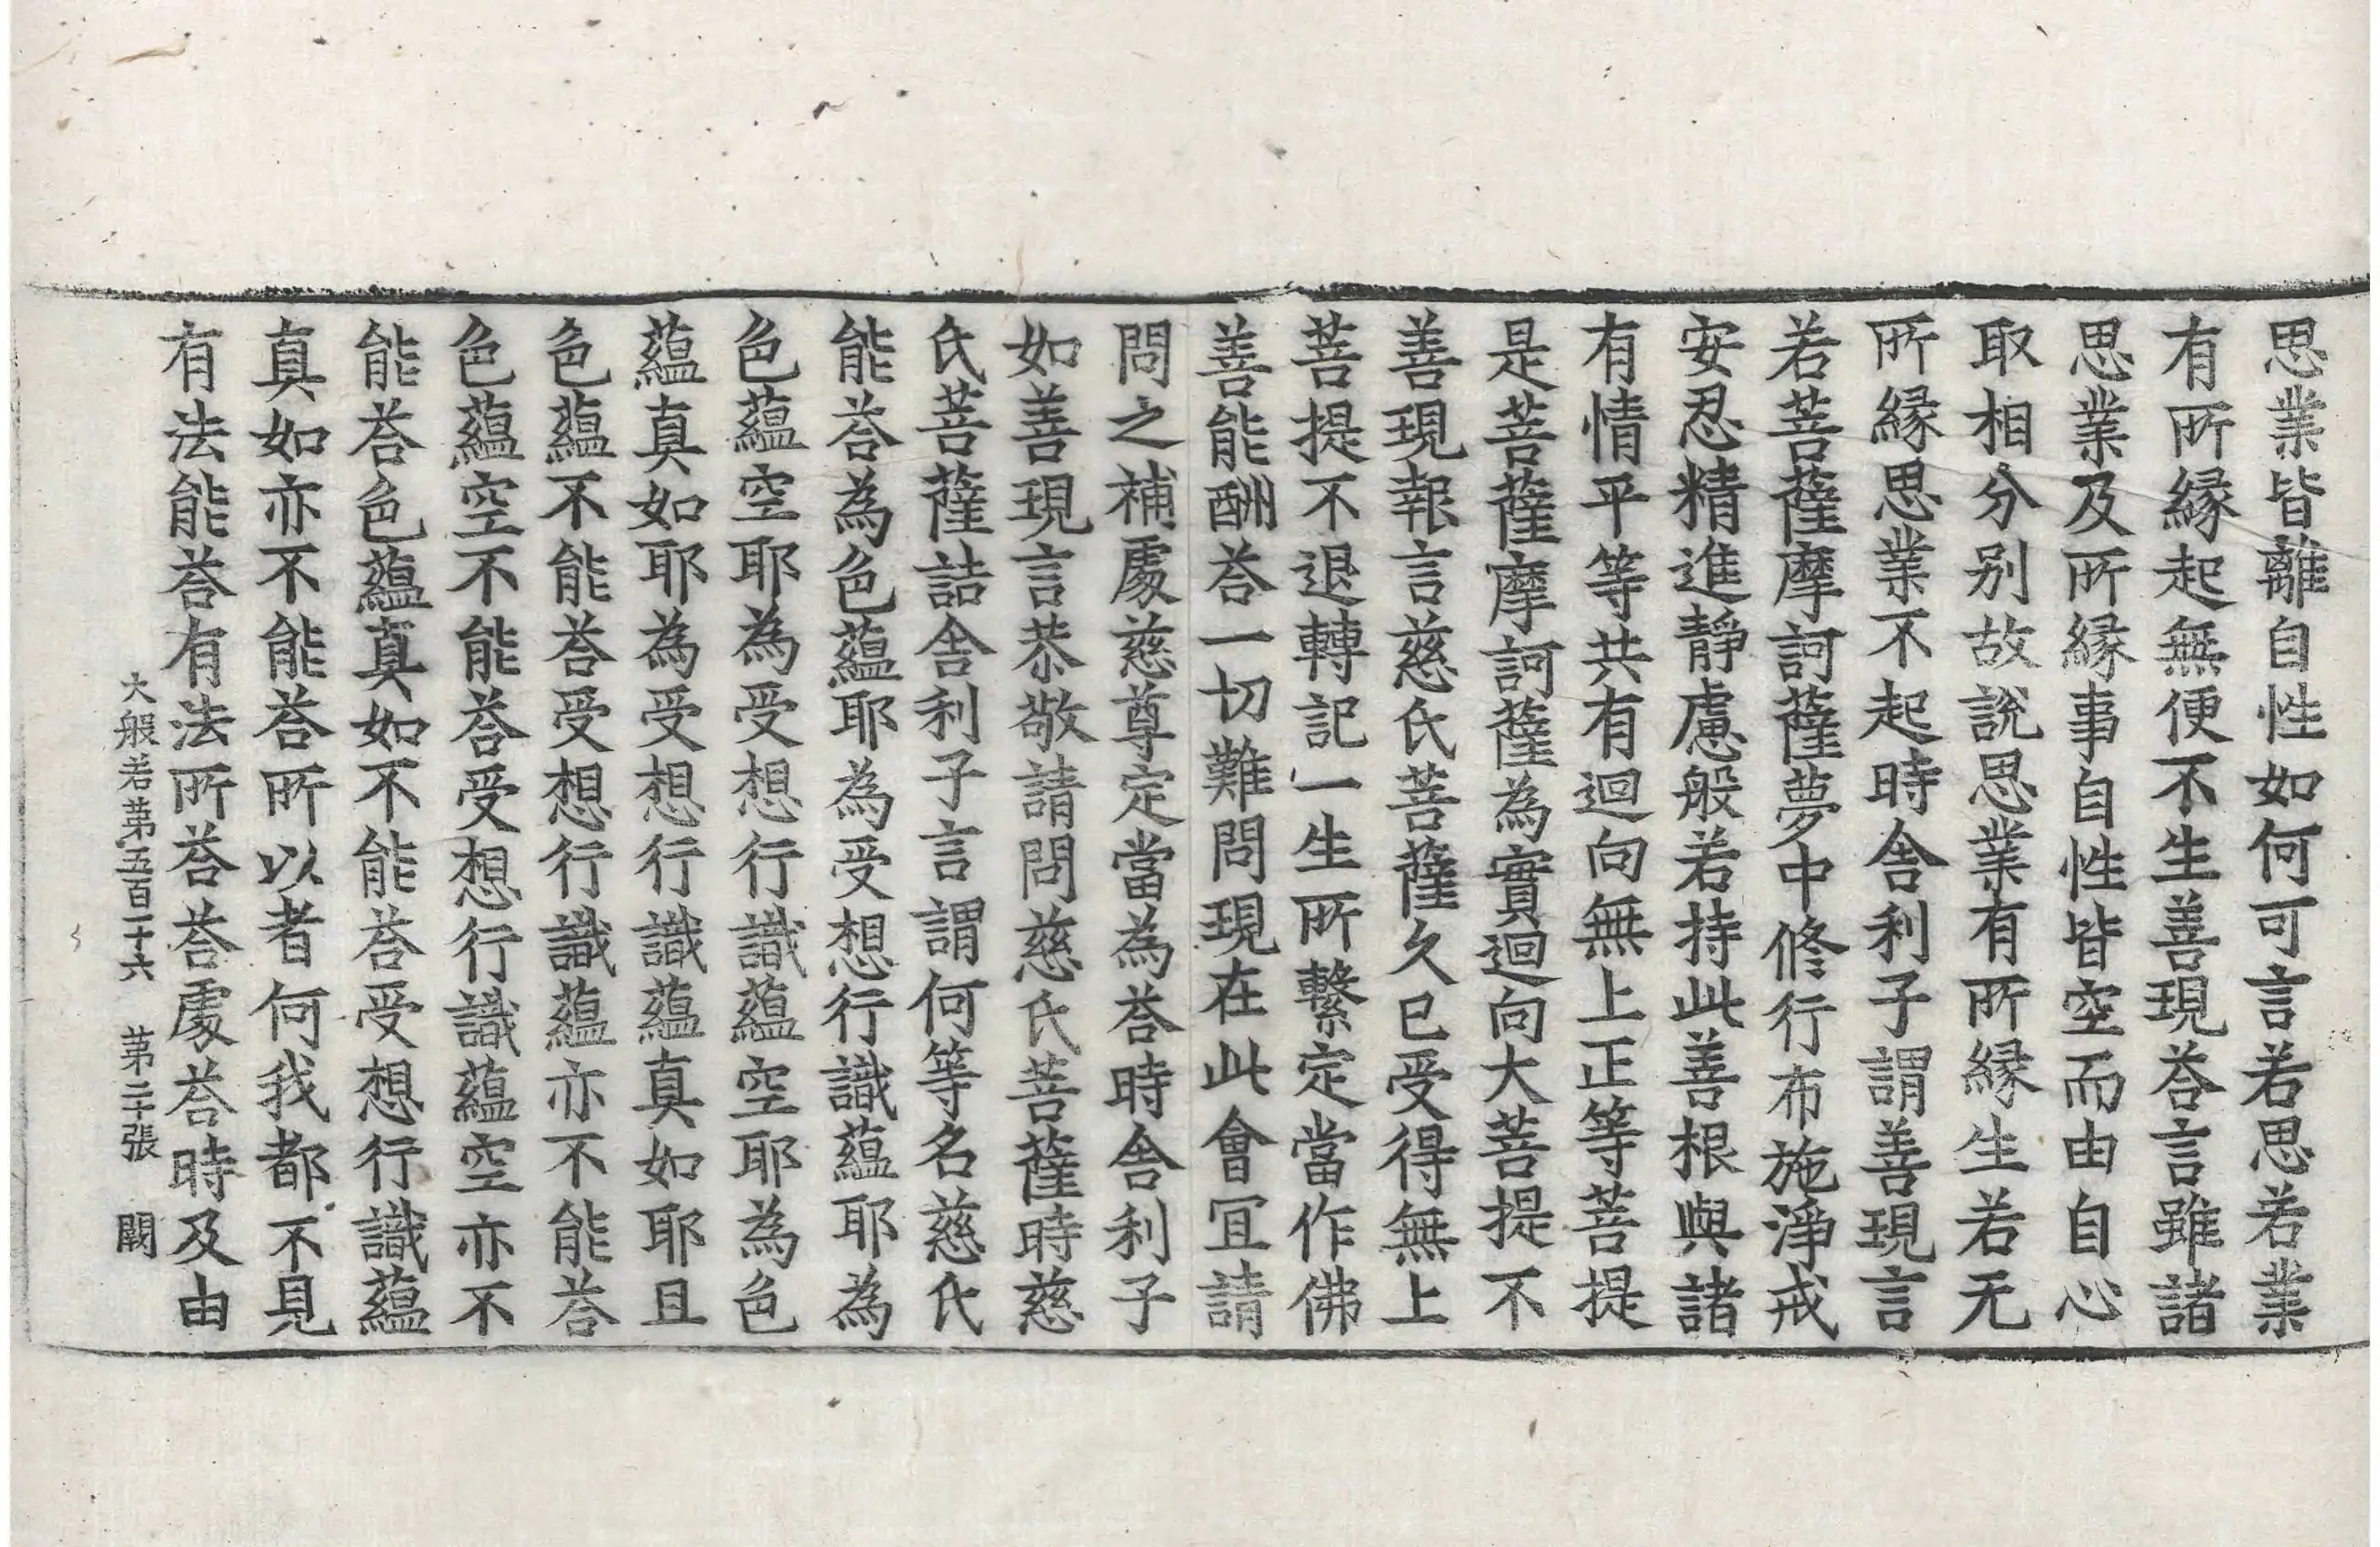 思業皆離自性如何可言若思若業
有所緣起無便不生善現荅言雖諸
思業及所緣事自性皆空而由自心
取相分別故說思業有所緣生若无
所緣思業不起時舍利子謂善現言
若菩薩摩訶薩夢中修行布施淨戒
安忍精進靜慮般若持此善根與諸
有情平等共有迴向無上正等菩提
是菩薩摩訶薩為實迴向大菩提不
善現報言慈氏菩薩久已受得無上
菩提不退轉記一生所繫定當作佛
善能酬荅一切難問現在此會冝請
問之補處慈尊定當為荅時舍利子
如善現言恭敬請問慈氏菩薩時慈
氏菩薩詰舍利子言謂何等名慈氏
能荅為色蘊耶為受想行識蘊耶為
色蘊空耶為受想行識蘊空耶為色
蘊真如耶為受想行識蘊真如耶且
色蘊不能荅受想行識蘊亦不能荅
色蘊空不能荅受想行識蘊空亦不
能荅色蘊真如不能荅受想行識蘊
真如亦不能荅所以者何我都不見
有法能荅有法所荅荅處荅時及由
大般若苐五百二十六　苐二十張　闕